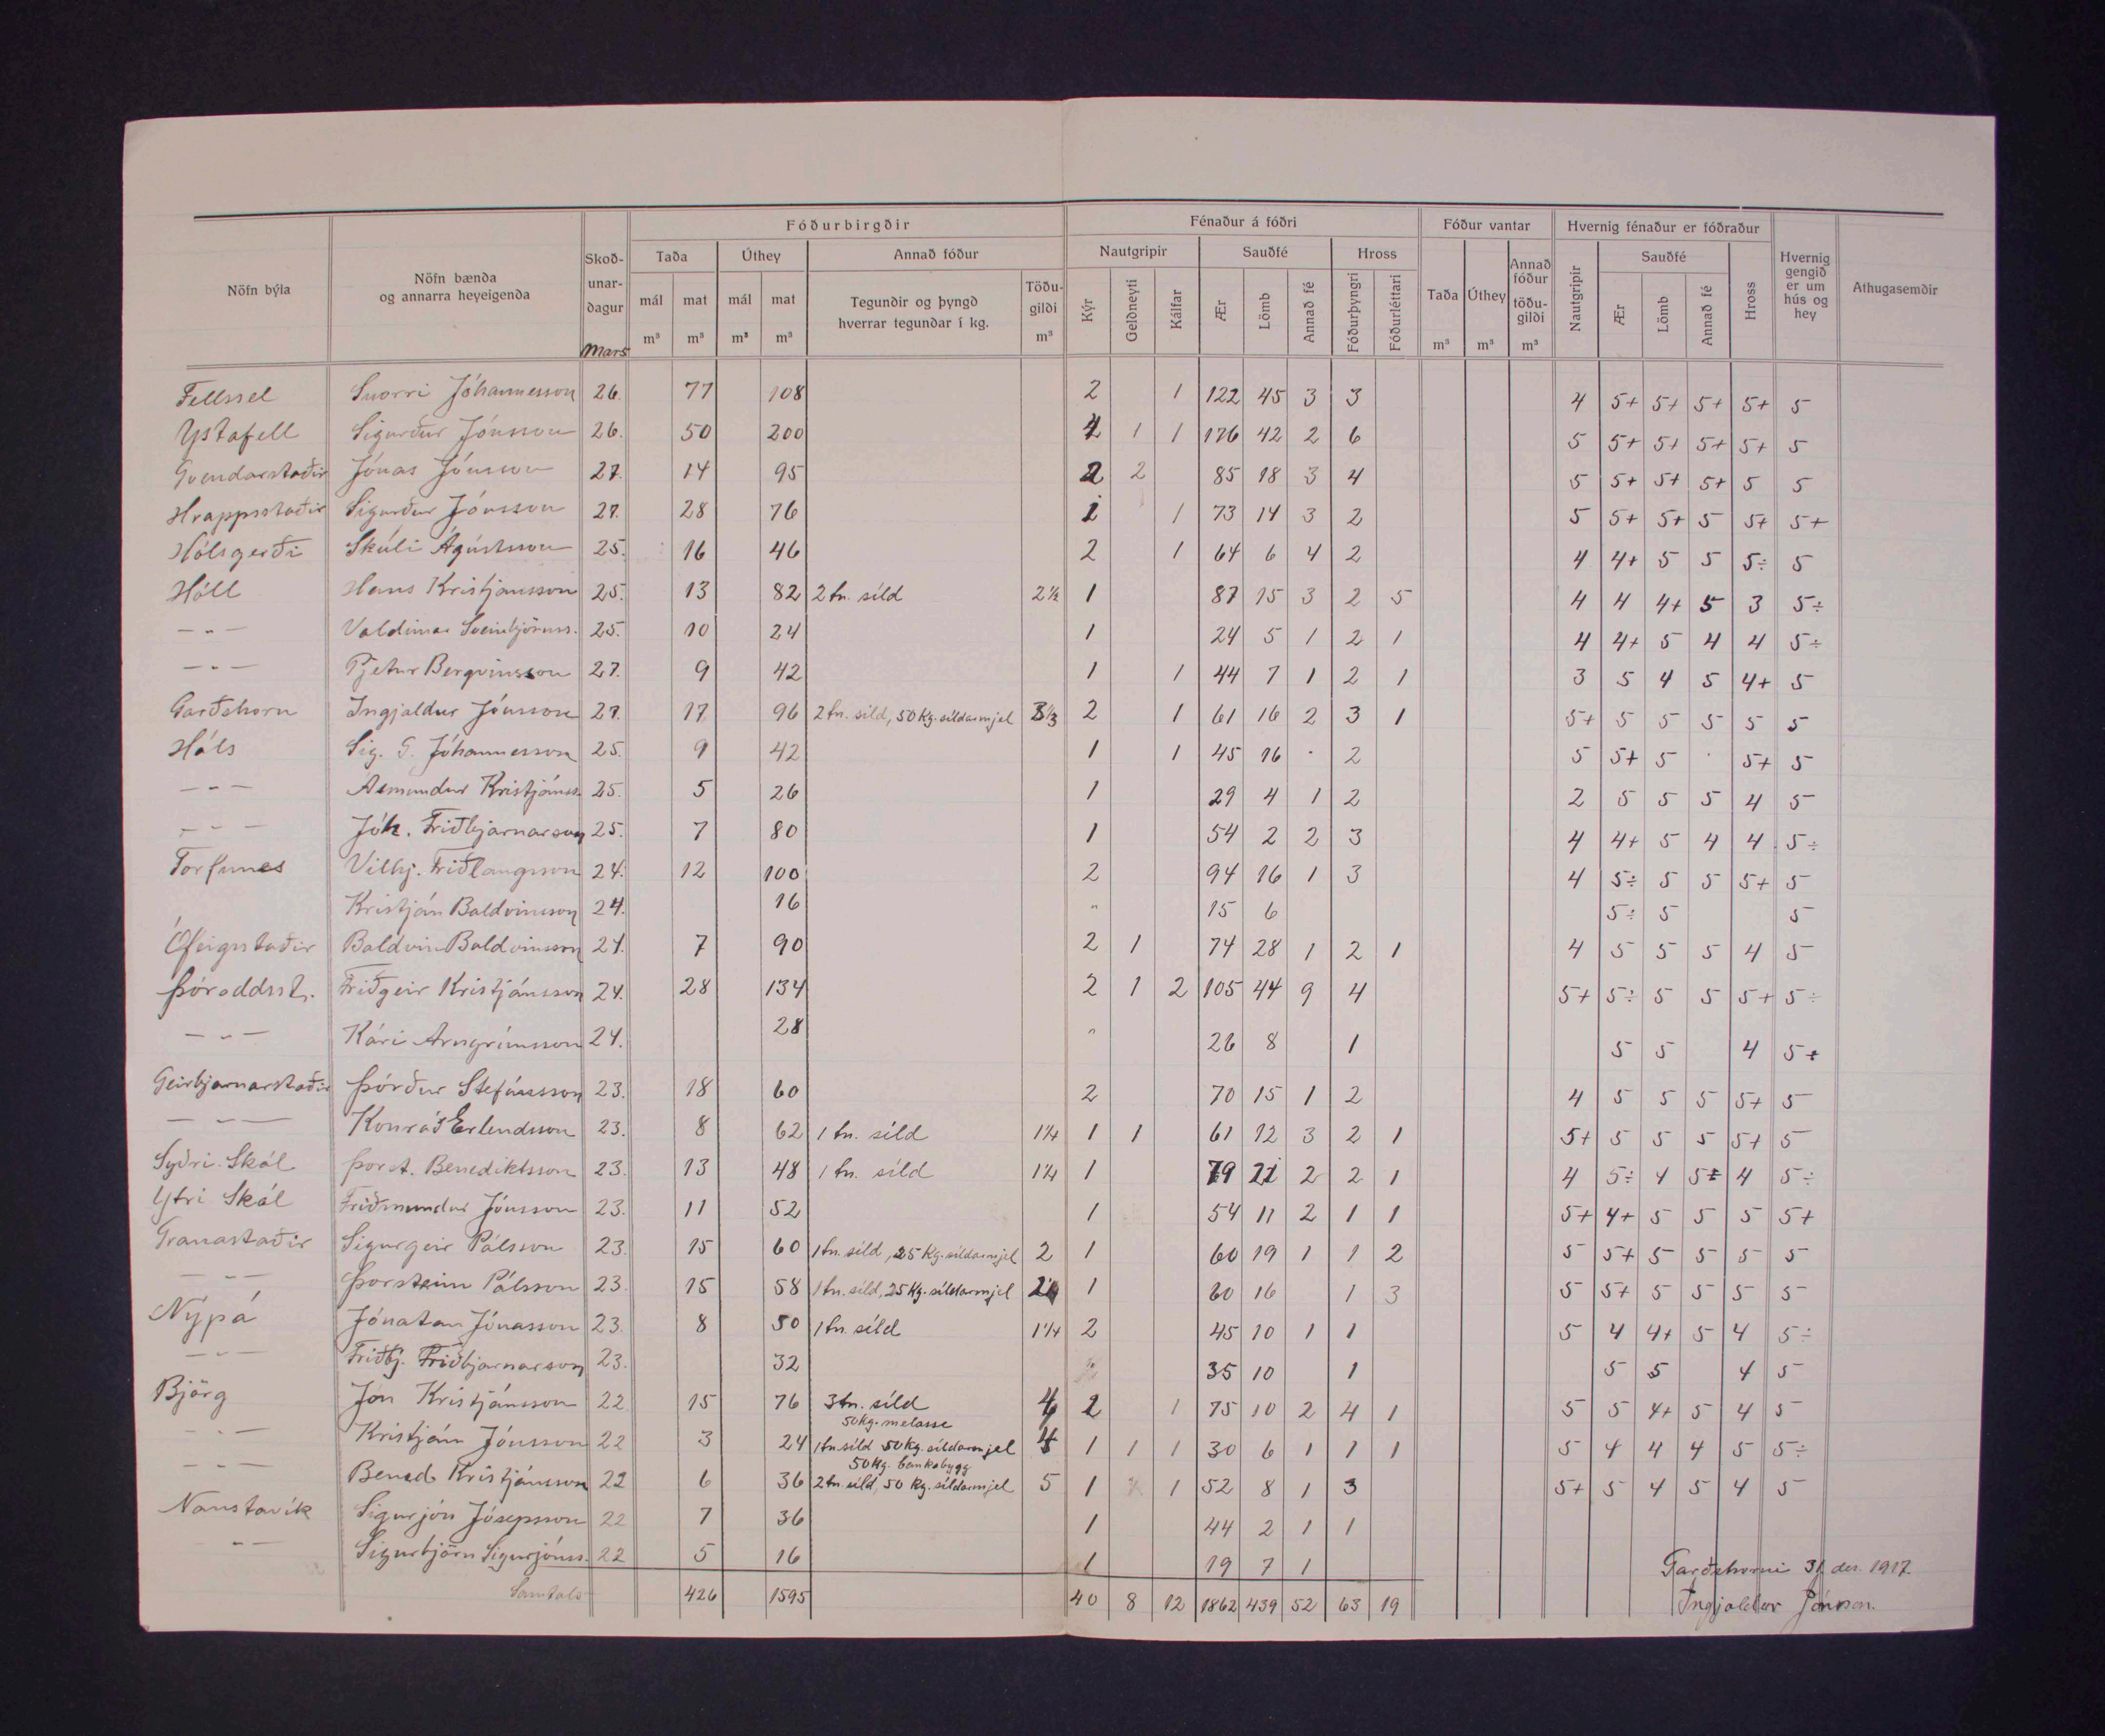 Fóðurbirgðir Fénaður á fóðri Fóður vantar Hvernig fénaður er fóðraður
Nöfn býla Nöfn bænda og annarra heyeigenda Skoðunardagur Taða Úthey Annað fóður Nautgripir Sauðfé Hross Taða Úthey Annað fóður töðugildi Nautgripir Sauðfé Hross Hvernig gengið er um hús og hey Athugasemdir
mál mat mál mat Tegundir og þyngd hverrar tegundar í kg. Töðugildi Kýr Geldneyti Kálfar Ær Lömb Annað fé Fóðurþyngri Fóðurléttari Ær Lömb Annað fé
Mars m³ m³ m³ m³ m³ m³ m³ m³
Fellssel Snorri Jóhannesson 26. 77 108 2 1 122 45 3 3 4 5+ 5+ 5+ 5+ 5
Ystafell Sigurður Jónsson 26. 50 200 4 1 1 176 42 2 6 5 5+ 5+ 5+ 5+ 5
Gvendarstaðir Jónas Jónsson 27. 14 95 2 2 85 18 3 4 5 5+ 5+ 5+ 5 5
Hrappsstaðir Sigurður Jónsson 27. 28 76 1 1 73 14 3 2 5 5+ 5+ 5 5+ 5+
Hólsgerði Skúli Ágústsson 25. 16 46 2 1 64 6 4 2 4 4+ 5 5 5÷ 5
Hóll Hans Kristjánsson 25. 13 82 2 tn. síld 2½ 1 87 15 3 2 5 4 4 4+ 5 3 5÷
— " — Valdimar Sveinbjörnss. 25. 10 24 1 24 5 1 2 1 4 4+ 5 4 4 5÷
— " — Pjetur Bergvinsson 27. 9 42 1 1 44 7 1 2 1 3 5 4 5 4+ 5
Garðshorn Ingjaldur Jónsson 27. 17 96 2 tn. síld, 50 kg. síldarmjel 3⅓ 2 1 61 16 2 3 1 5+ 5 5 5 5 5
Háls Sig. G. Jóhannesson 25. 9 42 1 1 45 16 · 2 5 5+ 5 · 5+ 5
— " — Ásmundur Kristjánss. 25. 5 26 1 29 4 1 2 2 5 5 5 4 5
— " — Jóh. Friðbjarnarson 25. 7 80 1 54 2 2 3 4 4+ 5 4 4 5÷
Torfunes Vilhj. Friðlaugsson 24. 12 100 2 94 16 1 3 4 5÷ 5 5 5+ 5
Kristján Baldvinsson 24. 16 " 15 6 5÷ 5 5
Ófeigsstaðir Baldvin Baldvinsson 24. 7 90 2 1 74 28 1 2 1 4 5 5 5 4 5
Þóroddsst. Friðgeir Kristjánsson 24. 28 134 2 1 2 105 44 9 4 5+ 5÷ 5 5 5+ 5÷
— " — Kári Arngrímsson 24. 28 " 26 8 1 5 5 4 5+
Geirbjarnarstaðir Þórður Stefánsson 23. 18 60 2 70 15 1 2 4 5 5 5 5+ 5
— " — Konráð Erlendsson 23. 8 62 1 tn. síld 1¼ 1 1 61 12 3 2 1 5+ 5 5 5 5+ 5
Syðri-Skál Þorst. Benediktsson 23. 13 48 1 tn. síld 1¼ 1 79 21 2 2 1 4 5÷ 4 5± 4 5÷
Ytri Skál Friðmundur Jónsson 23. 11 52 1 54 11 2 1 1 5+ 4+ 5 5 5 5+
Granastaðir Sigurgeir Pálsson 23. 15 60 1 tn. síld, 25 kg. síldarmjel 2 1 60 19 1 1 2 5 5+ 5 5 5 5
— " — Þorsteinn Pálsson 23. 15 58 1 tn. síld, 25 kg. síldarmjel 2 1 60 16 1 3 5 5+ 5 5 5 5
Nýpá Jónatan Jónasson 23. 8 50 1 tn. síld 1¼ 2 45 10 1 1 5 4 4+ 5 4 5÷
— " — Friðbj. Friðbjarnarson 23. 32 35 10 1 5 5 4 5
Björg Jón Kristjánsson 22 15 76 3 tn. síld 4 2 1 75 10 2 4 1 5 5 4+ 5 4 5
50 kg. melasse
— " — Kristján Jónsson 22 3 24 1 tn síld 50 kg. síldarmjel 4 1 1 1 30 6 1 1 1 5 4 4 4 5 5÷
50 kg. bankabygg
— " — Bened Kristjánsson 22 6 36 2 tn. síld, 50 kg. síldarmjel 5 1 1 52 8 1 3 5+ 5 4 5 4 5
Naustavík Sigurjón Jósepsson 22 7 36 1 44 2 1 1
— " — Sigurbjörn Sigurjónss. 22 5 16 1 19 7 1
Samtals 426 1595 40 8 12 1862 439 52 63 19
Garðshorni 31 des. 1917
Ingjaldur Jónsson.